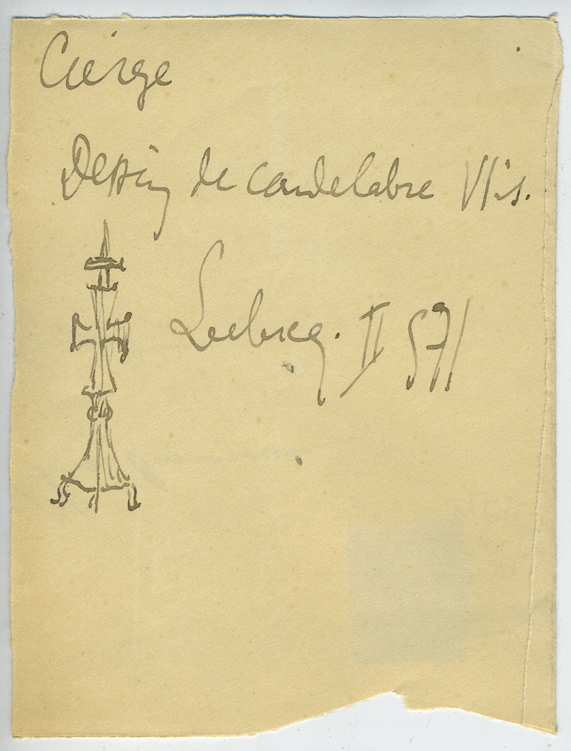 Cierge
Dessin de candelabre VIs.
Leclercq. II 571